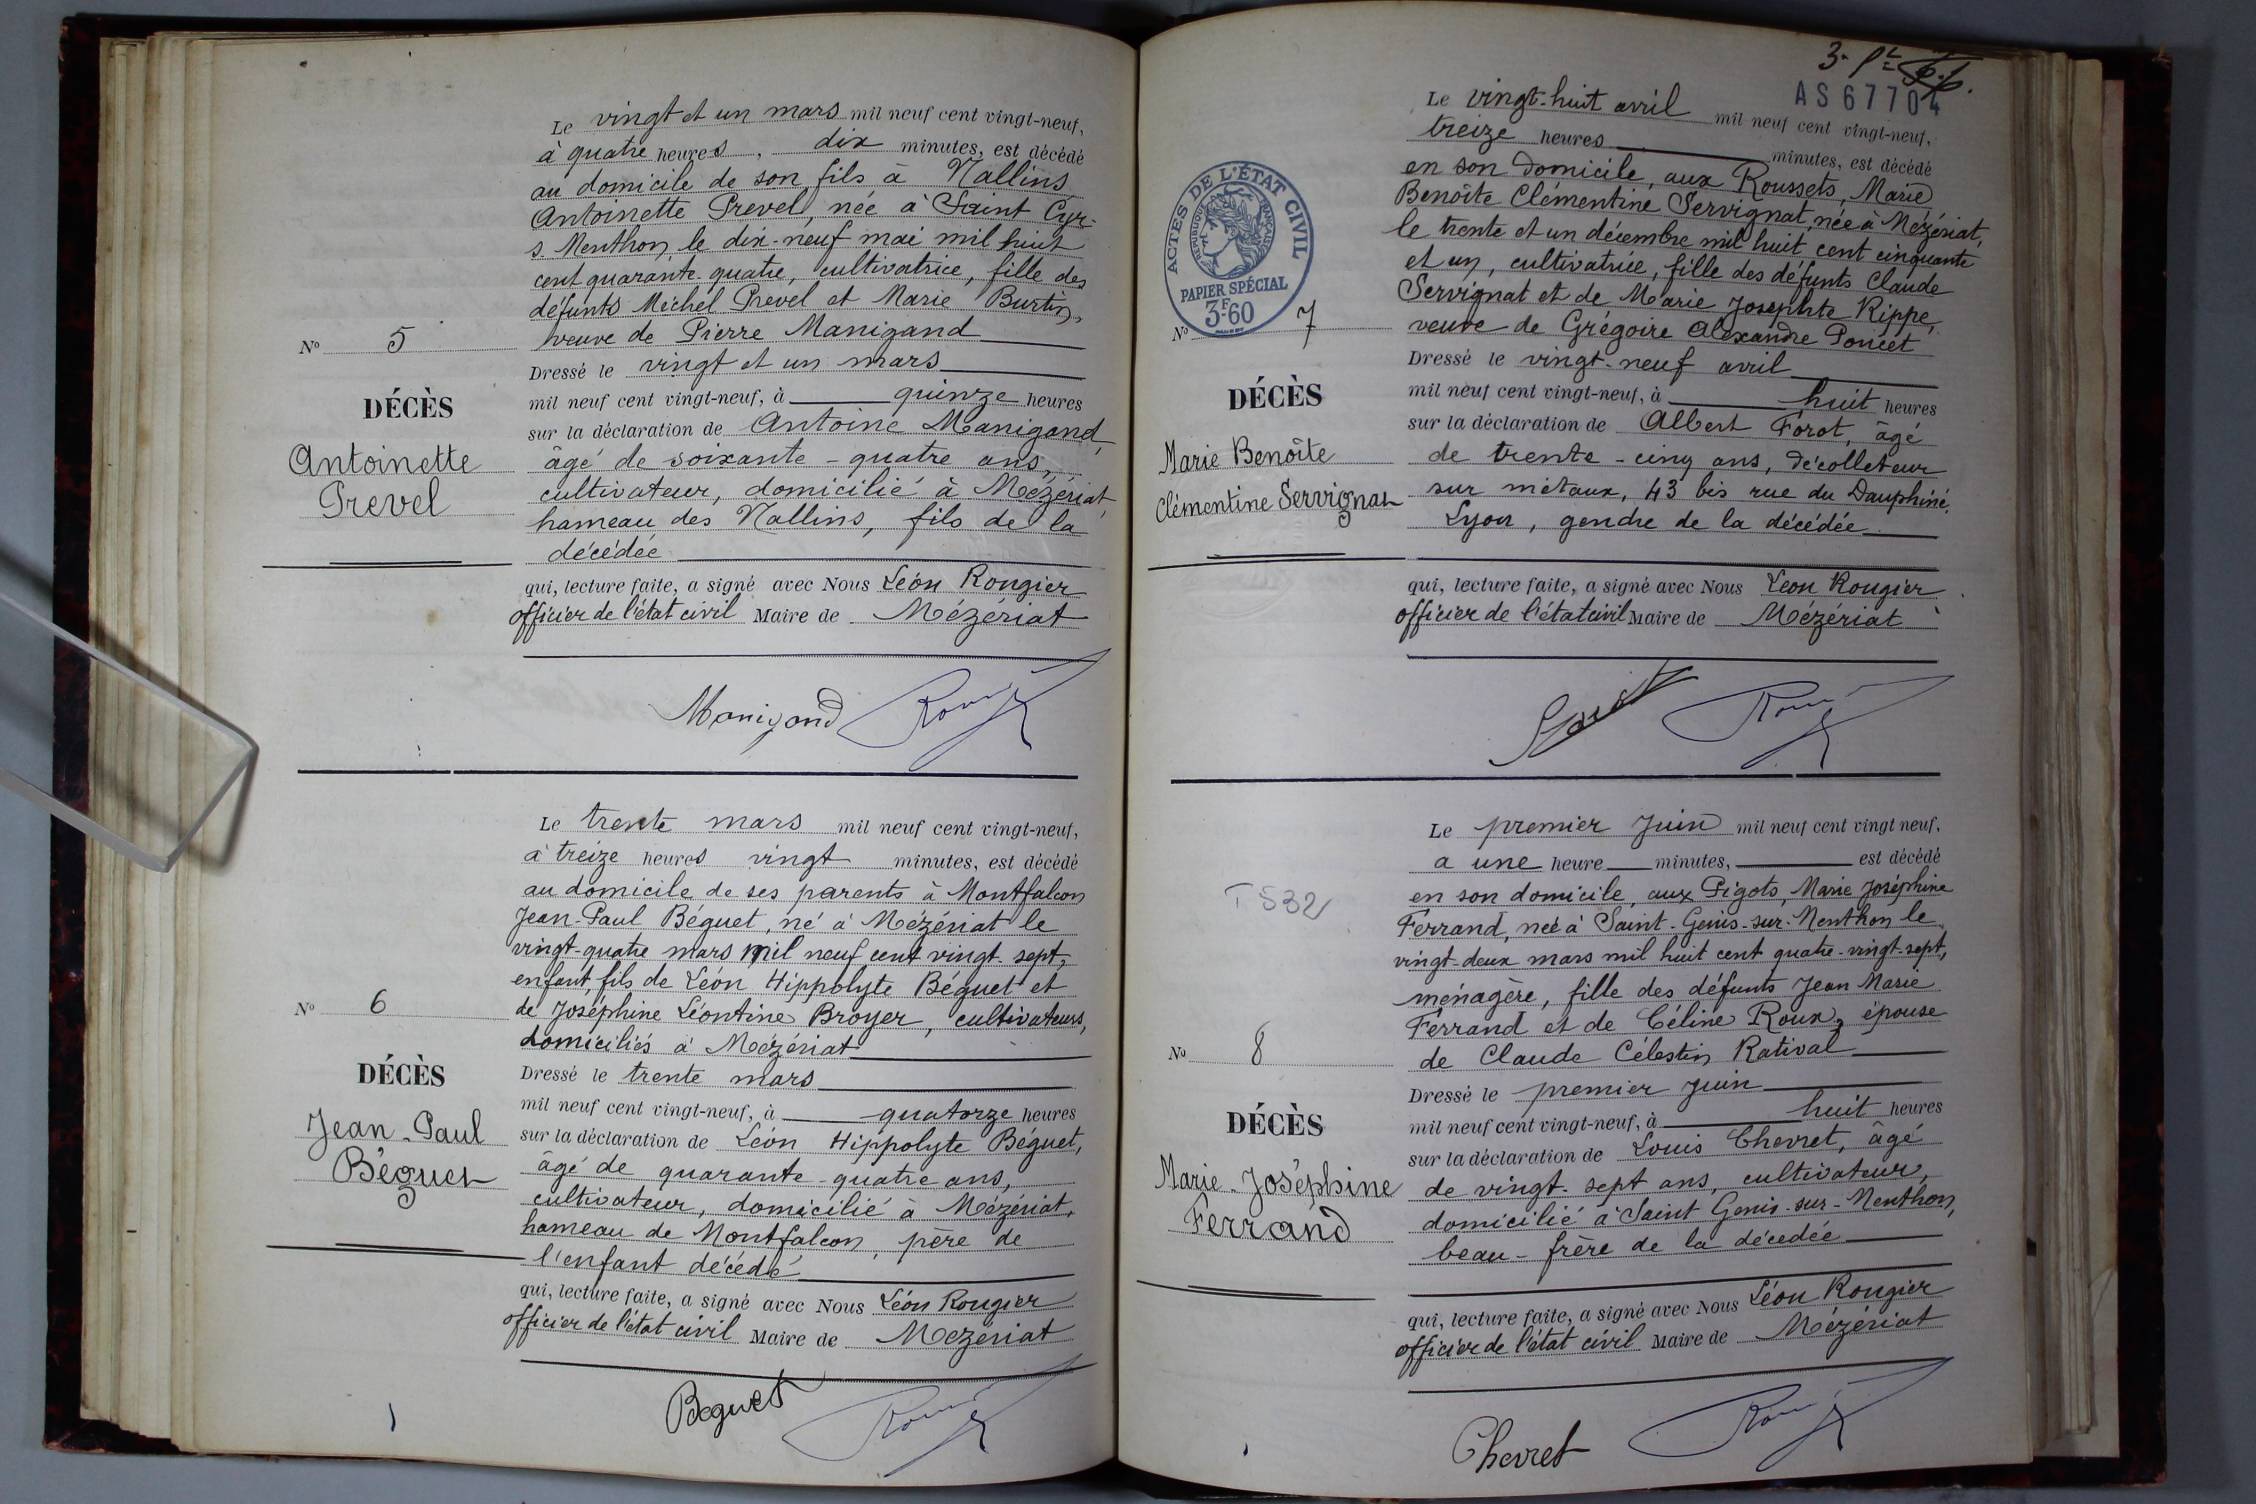 Le vingt et un mars mil neuf cent vingt-neuf,
à quatre heures, dix minutes, est décédé
au domicile de son fils à Nallins
Antoinette Prevel, née à Saint Cyr-
s Menthon, le dix-neuf mai mil huit
cent quarante-quatre, cultivatrice, fille des
défunts Michel Prevel et Marie Burtin,
veuve de Pierre Manigand
Dressé le vingt et un mars
mil neuf cent vingt-neuf, à quinze heures
sur la déclaration de Antoine Manigand,
âgé de soixante-quatre ans,
cultivateur, domicilié à Mézériat,
hameau des Nallins, fils de la
décédée
qui, lecture faite, a signé avec Nous Léon Rougier
officier de l'état civil Maire de Mézériat
Nº 5
DÉCÈS
Antoinette
Prevel
Manigand
Le trente mars mil neuf cent vingt-neuf,
à treize heures vingt minutes, est décédé
au domicile de ses parents à Montfalcon
Jean-Paul Béguet, né à Mézériat le
vingt-quatre mars mil neuf cent vingt-sept,
enfant, fils de Léon Hippolyte Béguet et
de Joséphine Léontine Broyer, cultivateurs,
domiciliés à Mézériat
Dressé le trente mars
mil neuf cent vingt-neuf, à quatorze heures
sur la déclaration de Léon Hippolyte Béguet,
âgé de quarante-quatre ans,
cultivateur, domicilié à Mézériat,
hameau de Montfalcon, père de
l'enfant décédé
qui, lecture faite, a signé avec Nous Léon Rougier
officier de l'état civil Maire de Mézériat
Nº 6
DÉCÈS
Jean-Paul
Béguet
Béguet
AS 67704
Le vingt-huit avril mil neuf cent vingt-neuf,
treize heures minutes, est décédé
en son domicile, aux Roussets, Marie
Benoîte Clémentine Servignat, née à Mézériat,
le trente et un décembre mil huit cent cinquante
et un, cultivatrice, fille des défunts Claude
Servignat et de Marie Josephte Rippe,
veuve de Grégoire Alexandre Poncet
Dressé le vingt-neuf avril
mil neuf cent vingt-neuf, à huit heures
sur la déclaration de Albert Forot, âgé
de trente-cinq ans, décolleteur
sur métaux, 43 bis rue du Dauphiné,
Lyon, gendre de la décédée
qui, lecture faite, a signé avec Nous Léon Rougier
officier de l'état civil Maire de Mézériat
ACTES DE L'ÉTAT CIVIL
RÉPUBLIQUE FRANÇAISE
PAPIER SPÉCIAL
3F60
Nº 7
DÉCÈS
Marie Benoîte
Clémentine Servignat
Le premier Juin mil neuf cent vingt neuf,
a une heure minutes, est décédé
en son domicile, aux Pigots, Marie Joséphine
Ferrand, née à Saint-Genis-sur-Menthon le
vingt-deux mars mil huit cent quatre-vingt-sept,
ménagère, fille des défunts Jean Marie
Ferrand et de Céline Roux, épouse
de Claude Célestin Ratival
Dressé le premier Juin
mil neuf cent vingt-neuf, à huit heures
sur la déclaration de Louis Chevret, âgé
de vingt-sept ans, cultivateur,
domicilié à Saint Genis-sur-Menthon,
beau-frère de la décédée
qui, lecture faite, a signé avec Nous Léon Rougier
officier de l'état civil Maire de Mézériat
T 532
Nº 8
DÉCÈS
Marie-Joséphine
Ferrand
Chevret